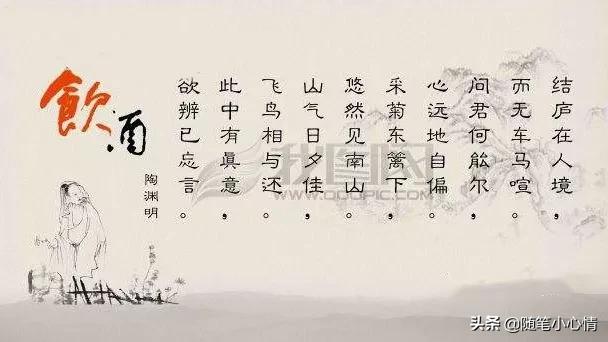 飲酒
陶渊明
结庐在人境，
而无车马喧。
问君何能尔，
心远地自偏。
采菊东篱下，
悠然见南山。
山气日夕佳，
飞鸟相与还。
此中有眞意，
欲辨已忘言。
头条 @随笔小心情